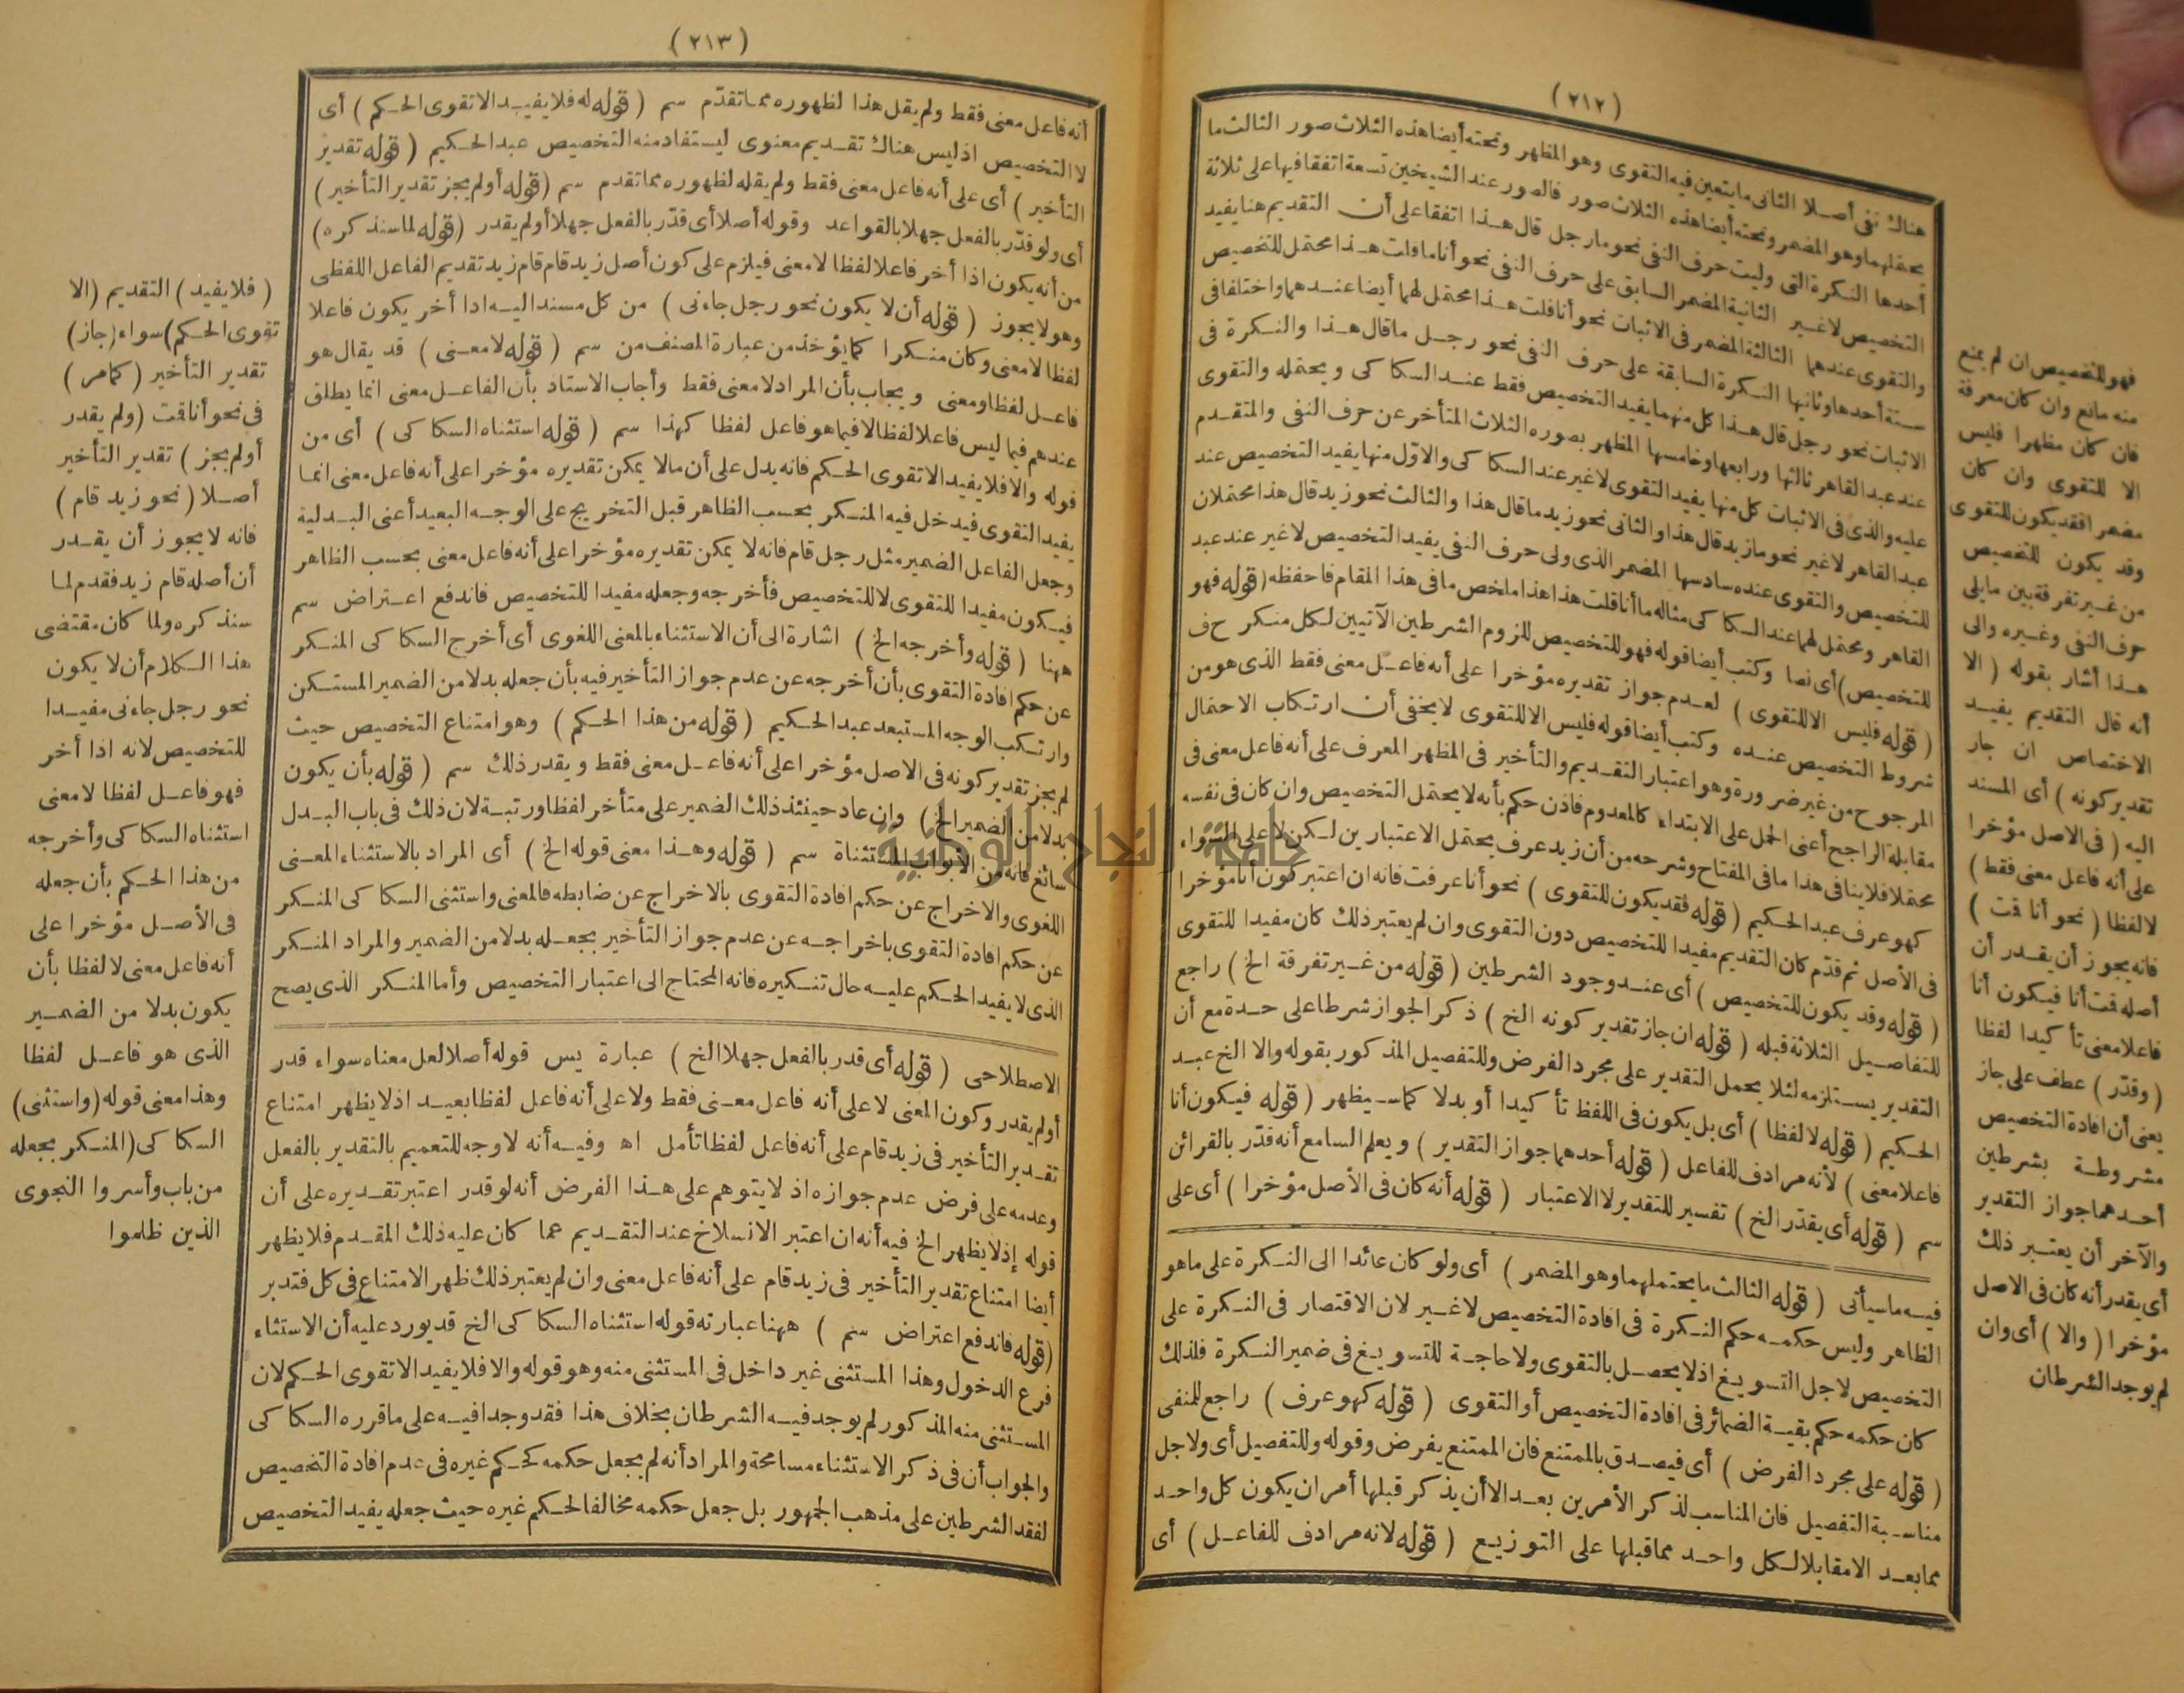 (٢١٢)
هناك نفى أصلا الثانى ما يتعين فيه التقوى وهو المظهر وتحته أيضا هذه الثلاث صور الثالث ما
يحتملهما وهو المضمر وتحته أيضا هذه الثلاث صور فالصور عند الشيخين تسعة اتفقا فيها على ثلاثة
أحدها النكرة التى وليت حرف النفى نحو ما رجل قال هذا اتفقا على أن التقديم هنا يفيد
التخصيص لاغير الثانية المضمر السابق على حرف النفى نحو أنا ما قلت هذا محتمل للتخصيص
والتقوى عندهما الثالثة المضمر فى الاثبات نحو أنا قلت هذا محتمل لهما أيضا عندهما واختلفا فى
ستة أحدها وثانيها النكرة السابقة على حرف النفى نحو رجل ما قال هذا والنكرة فى
الاثبات نحو رجل قال هذا كل منهما يفيد التخصيص فقط عند السكاكى ويحتمله والتقوى
عند عبد القاهر ثالثها ورابعها وخامسها المظهر بصوره الثلاث المتأخر عن حرف النفى والمتقدم
عليه والذى فى الاثبات كل منها يفيد التقوى لاغير عند السكاكى والاوّل منها يفيد التخصيص عند
عبد القاهر لاغير نحو ما زيد قال هذا والثانى نحو زيد ما قال هذا والثالث نحو زيد قال هذا محتملان
للتخصيص والتقوى عنده سادسها المضمر الذى ولى حرف النفى يفيد التخصيص لاغير عند عبد
القاهر ومحتمل لهما عند السكاكى مثاله ما أنا قلت هذا هذا ملخص ما فى هذا المقام فاحفظه (قوله فهو
للتخصيص) أى نصا وكتب أيضا قوله فهو للتخصيص للزوم الشرطين الآتيين لكل منكر ح ف
(قوله فليس الا للتقوى) لعدم جواز تقديره مؤخرا على أنه فاعل معنى فقط الذى هو من
شروط التخصيص عنده وكتب أيضا قوله فليس الا للتقوى لا يخفى أن ارتكاب الاحتمال
المرجوح من غير ضرورة وهو اعتبار التقديم والتأخير فى المظهر المعرف على أنه فاعل معنى فى
مقابلة الراجح أعنى الحمل على الابتداء كالمعدوم فاذن حكم بأنه لا يحتمل التخصيص وان كان فى نفسه
محتملا فلا ينافى هذا ما فى المفتاح وشرحه من أن زيد عرف يحتمل الاعتبارين لكن لا على السواء
كهو عرف عبد الحكيم (قوله فقد يكون للتقوى) نحو أنا عرفت فانه ان اعتبر كون أنا مؤخرا
فى الأصل ثم قدّم كان التقديم مفيدا للتخصيص دون التقوى وان لم يعتبر ذلك كان مفيدا للتقوى
(قوله وقد يكون للتخصيص) أى عند وجود الشرطين (قوله من غير تفرقة الخ) راجع
للتفاصيل الثلاثة قبله (قوله ان جاز تقدير كونه الخ) ذكر الجواز شرطا على حدة مع أن
التقدير يستلزمه لئلا يحمل التقدير على مجرد الفرض وللتفصيل المذكور بقوله والا الخ عبد
الحكيم (قوله لا لفظا) أى بل يكون فى اللفظ تأكيدا أو بدلا كما سيظهر (قوله فيكون أنا
فاعلا معنى) لأنه مرادف للفاعل (قوله أحدهما جواز التقدير) ويعلم السامع أنه قدّر بالقرائن
سم (قوله أى يقدّر الخ) تفسير للتقدير لا الاعتبار (قوله أنه كان فى الأصل مؤخرا) أى على
فيه ما سيأتى (قوله الثالث ما يحتملهما وهو المضمر) أى ولو كان عائدا الى النكرة على ما هو
الظاهر وليس حكمه حكم النكرة فى افادة التخصيص لاغير لان الاقتصار فى النكرة على
التخصيص لاجل التسويغ اذ لا يحصل بالتقوى ولا حاجة للتسويغ فى ضمير النكرة فلذلك
كان حكمه حكم بقية الضمائر فى افادة التخصيص أو التقوى (قوله كهو عرف) راجع للمنفى
(قوله على مجرد الفرض) أى فيصدق بالممتنع فان الممتنع يفرض وقوله وللتفصيل أى ولاجل
مناسبة التفصيل فان المناسب لذكر الأمرين بعد الا أن يذكر قبلها أمران يكون كل واحد
مما بعد الا مقابلا لكل واحد مما قبلها على التوزيع (قوله لانه مرادف للفاعل) أى
فهو للتخصيص ان لم يمنع
منه مانع وان كان معرفة
فان كان مظهرا فليس
الا للتقوى وان كان
مضمرا فقد يكون للتقوى
وقد يكون للتخصيص
من غير تفرقة بين ما يلى
حرف النفى وغيره والى
هذا أشار بقوله (الا
أنه قال التقديم يفيد
الاختصاص ان جاز
تقدير كونه) أى المسند
اليه (فى الاصل مؤخرا
على أنه فاعل معنى فقط)
لا لفظا (نحو أنا قمت)
فانه يجوز أن يقدر أن
أصله قمت أنا فيكون أنا
فاعلا معنى تأكيدا لفظا
(وقدّر) عطف على جاز
يعنى أن افادة التخصيص
مشروطة بشرطين
أحدهما جواز التقدير
والآخر أن يعتبر ذلك
أى يقدر أنه كان فى الاصل
مؤخرا (والا) أى وان
لم يوجد الشرطان
(٢١٣)
أنه فاعل معنى فقط ولم يقل هذا لظهوره مما تقدّم سم (قوله له فلا يفيد الا تقوى الحكم) أى
لا التخصيص اذ ليس هناك تقديم معنوى ليستفاد منه التخصيص عبد الحكيم (قوله تقدير
التأخير) أى على أنه فاعل معنى فقط ولم يقله لظهوره مما تقدم سم (قوله أو لم يجز تقدير التأخير)
أى ولو قدّر بالفعل جهلا بالقواعد وقوله أصلا أى قدّر بالفعل جهلا أو لم يقدر (قوله لما سنذكره)
من أنه يكون اذا أخر فاعلا لفظا لا معنى فيلزم على كون أصل زيد قام قام زيد تقديم الفاعل اللفظى
وهو لا يجوز (قوله أن لا يكون نحو رجل جاءنى) من كل مسند اليه اذا أخر يكون فاعلا
لفظا لا معنى وكان منكرا كما يؤخذ من عبارة المصنف من سم (قوله لا معنى) قد يقال هو
فاعل لفظا ومعنى ويجاب بأن المراد لا معنى فقط وأجاب الاستاذ بأن الفاعل معنى انما يطلق
عندهم فيما ليس فاعلا لفظا لا فيما هو فاعل لفظا كهذا سم (قوله استثناه السكاكى) أى من
قوله والا فلا يفيد الا تقوى الحكم فانه يدل على أن ما لا يمكن تقديره مؤخرا على أنه فاعل معنى انما
يفيد التقوى فيدخل فيه المنكر بحسب الظاهر قبل التخريج على الوجه البعيد أعنى البدلية
وجعل الفاعل الضمير مثل رجل قام فانه لا يمكن تقديره مؤخرا على أنه فاعل معنى بحسب الظاهر
فيكون مفيدا للتقوى لا للتخصيص فأخرجه وجعله مفيدا للتخصيص فاندفع اعتراض سم
ههنا (قوله وأخرجه الخ) اشارة الى أن الاستثناء بالمعنى اللغوى أى أخرج السكاكى المنكر
عن حكم افادة التقوى بأن أخرجه عن عدم جواز التأخير فيه بأن جعله بدلا من الضمير المستكن
وارتكب الوجه المستبعد عبد الحكيم (قوله من هذا الحكم) وهو امتناع التخصيص حيث
لم يجز تقدير كونه فى الاصل مؤخرا على أنه فاعل معنى فقط ويقدر ذلك سم (قوله بأن يكون
بدلا من الضمير الخ) وان عاد حينئذ ذلك الضمير على متأخر لفظا ورتبة لان ذلك فى باب البدل
سائغ فانه من الابواب المستثناة سم (قوله وهذا معنى قوله الخ) أى المراد بالاستثناء المعنى
اللغوى والاخراج عن حكم افادة التقوى بالاخراج عن ضابطه فالمعنى واستثنى السكاكى المنكر
عن حكم افادة التقوى باخراجه عن عدم جواز التأخير بجعله بدلا من الضمير والمراد المنكر
الذى لا يفيد الحكم عليه حال تنكيره فانه المحتاج الى اعتبار التخصيص وأما المنكر الذى يصح
الاصطلاحى (قوله أى قدر بالفعل جهلا الخ) عبارة يس قوله أصلا لعل معناه سواء قدر
أو لم يقدر وكون المعنى لا على أنه فاعل معنى فقط ولا على أنه فاعل لفظا بعيد اذ لا يظهر امتناع
تقدير التأخير فى زيد قام على أنه فاعل لفظا تأمل اه وفيه أنه لا وجه للتعميم بالتقدير بالفعل
وعدمه على فرض عدم جوازه اذ لا يتوهم على هذا الفرض أنه لو قدر اعتبر تقديره على أن
قوله إذ لا يظهر الخ فيه أنه ان اعتبر الانسلاخ عند التقديم عما كان عليه ذلك المقدم فلا يظهر
أيضا امتناع تقدير التأخير فى زيد قام على أنه فاعل معنى وان لم يعتبر ذلك ظهر الامتناع فى كل فتدبر
(قوله فاندفع اعتراض سم) ههنا عبارته قوله استثناه السكاكى الخ قد يورد عليه أن الاستثناء
فرع الدخول وهذا المستثنى غير داخل فى المستثنى منه وهو قوله والا فلا يفيد الا تقوى الحكم لان
المستثنى منه المذكور لم يوجد فيه الشرطان بخلاف هذا فقد وجدا فيه على ما قرره السكاكى
والجواب أن فى ذكر الاستثناء مسامحة والمراد أنه لم يجعل حكمه كحكم غيره فى عدم افادة التخصيص
لفقد الشرطين على مذهب الجمهور بل جعل حكمه مخالفا لحكم غيره حيث جعله يفيد التخصيص
(فلا يفيد) التقديم (الا
تقوى الحكم) سواء (جاز)
تقدير التأخير (كما مر)
فى نحو أنا قمت (ولم يقدر
أو لم يجز) تقدير التأخير
أصلا (نحو زيد قام)
فانه لا يجوز أن يقدر
أن أصله قام زيد فقدم لما
سنذكره ولما كان مقتضى
هذا الكلام أن لا يكون
نحو رجل جاءنى مفيدا
للتخصيص لانه اذا أخر
فهو فاعل لفظا لا معنى
استثناه السكاكى وأخرجه
من هذا الحكم بأن جعله
فى الأصل مؤخرا على
أنه فاعل معنى لا لفظا بأن
يكون بدلا من الضمير
الذى هو فاعل لفظا
وهذا معنى قوله (واستثنى)
السكاكى (المنكر بجعله
من باب وأسروا النجوى
الذين ظلموا
جامعة النجاح الوطنية